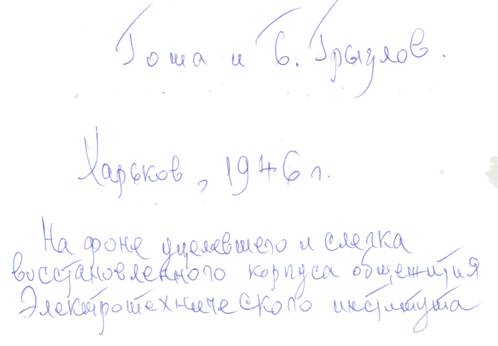 Гоша и Б. Грызлов.
Харьков, 1946 г.
На фоне уцелевшего и слегка
восстановленного корпуса общежития
Электротехнического института